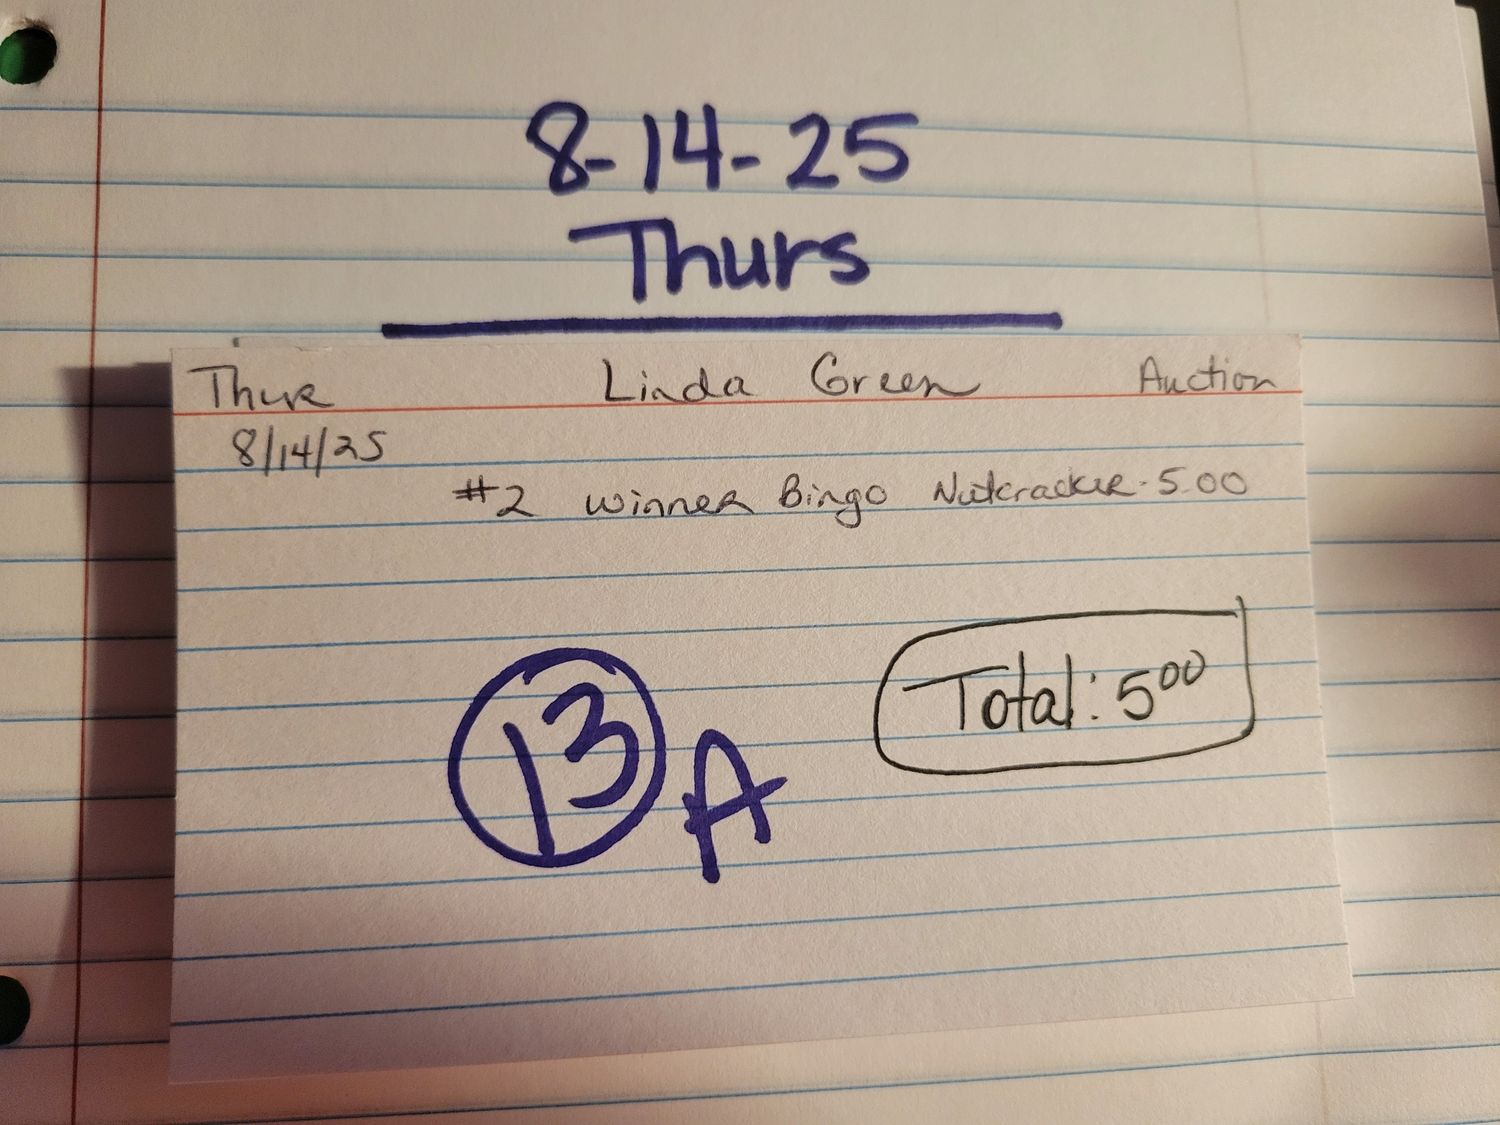 8-14-25
Thurs
Thur Linda Green Auction
8/14/25
#2 winner Bingo Nutcracker - 5.00
Total: 500
13 A